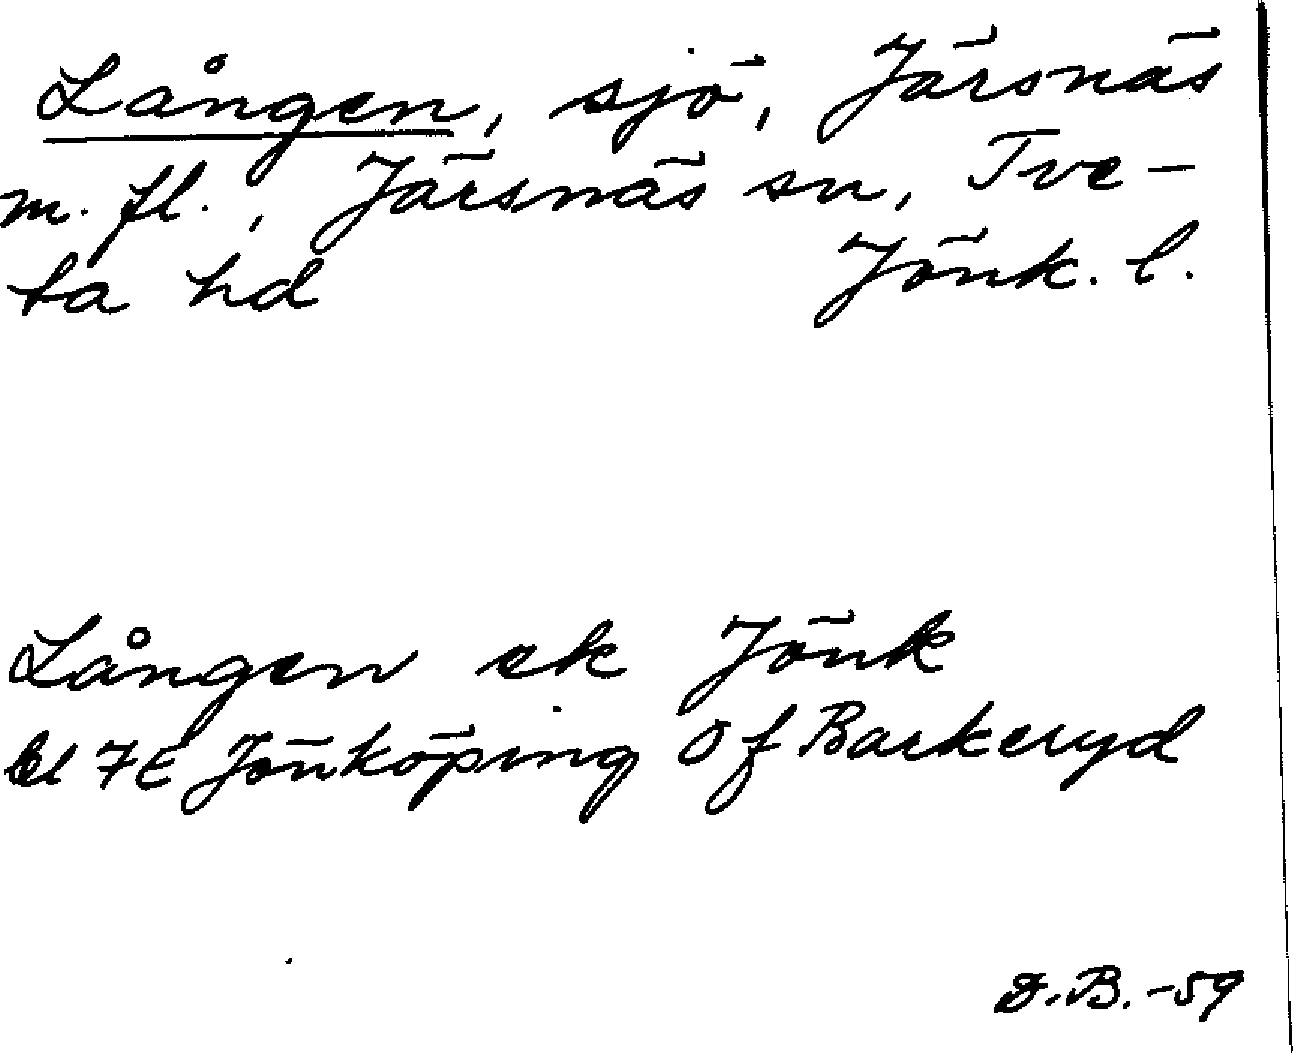 Lången, sjö, Järsnäs
m. fl., Järsnäs sn, Tve-
ta hd Jönk. l.
Lången ek Jönk
bl 7E Jönköping Of Barkeryd
D.B. -59